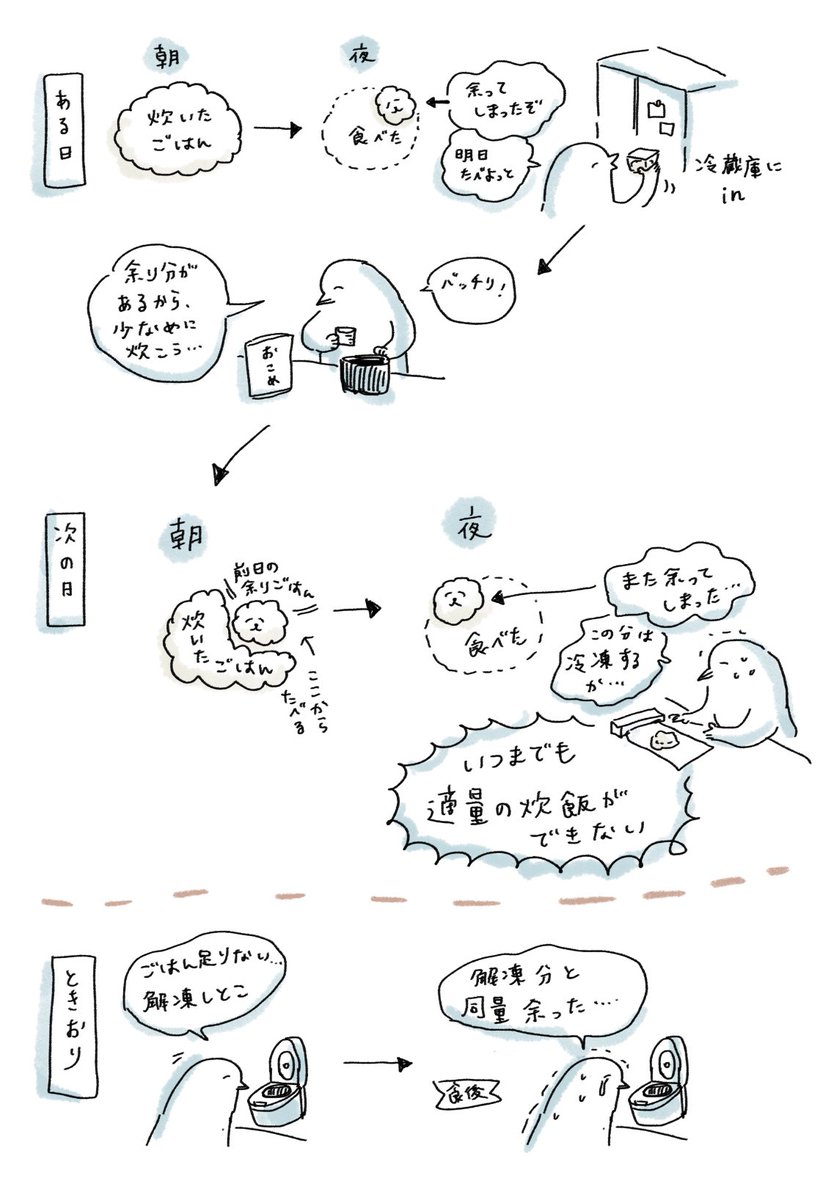 ある日
朝
炊いた
ごはん
夜
食べた
余って
しまったぞ
明日
たべよっと
冷蔵庫に
in
余り分が
あるから、
少なめに
炊こう…
おこめ
バッチリ!
次の日
朝
前日の
余りごはん
炊いた
ごはん
ここから
たべる
夜
食べた
また余って
しまった…
この分は
冷凍する
が…
いつまでも
適量の炊飯が
できない
ときおり
ごはん足りない…
解凍しとこ
食後
解凍分と
同量余った….